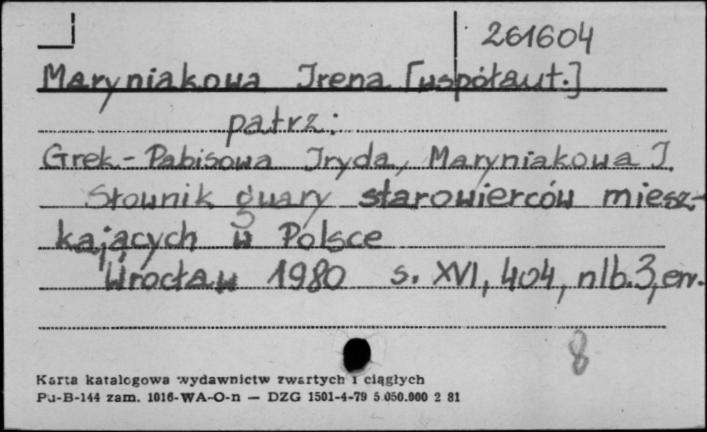 261604
Maryniakowa Irena [współaut.]
patrz:
Grek-Pabisowa Iryda, Maryniakowa I.
Słownik gwary starowierców miesz-
kających w Polsce
Wrocław 1980 s. XVI, 404, nlb.3, err.
8
Karta katalogowa wydawnictw zwartych i ciągłych
Pu-B-144 zam. 1016-WA-O-n — DZG 1501-4-79 5.050.000 2 81